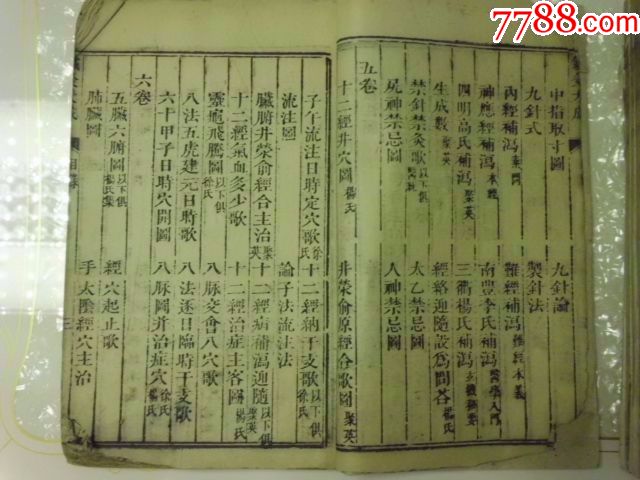 7788.com
中指取寸圖 九針論
九針式 製針法
內經補瀉素問 難經補瀉難經本義
神應經補瀉本經 南豐李氏補瀉醫學入門
四明高氏補瀉聚英 三衢楊氏補瀉玄機秘要
生成數聚英 經絡迎隨設為問答楊氏
禁針禁灸歌 太乙禁忌圖
尻神禁忌圖 人神禁忌圖
五卷
十二經井穴圖楊氏 井滎俞原經合歌圖聚英
子午流注日時定穴歌徐氏 十二經納干支歌以下俱徐氏
流注圖 論子午流注法
臟腑井滎俞經合主治聚英 十二經病補瀉迎隨以下俱聚英
十二經氣血多少歌 十二經治症主客圖楊氏
靈龜飛騰圖以下俱徐氏 八脉交會八穴歌
八法五虎建元日時歌 八法逐日臨時干支歌
六十甲子日時穴開圖 八脉圖并治症穴徐氏楊氏
六卷
五臟六腑圖以下俱楊氏集 經穴起止歌
肺臟圖 手太陰經穴主治
三